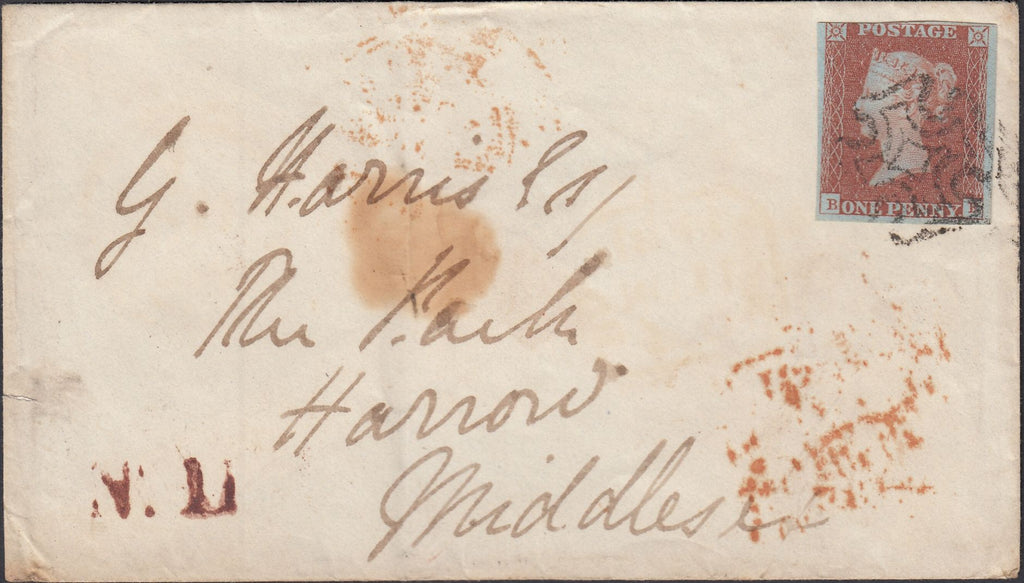 POSTAGE
B ONE PENNY
G. Harris Esq
The Park
Harrow
Middlesex